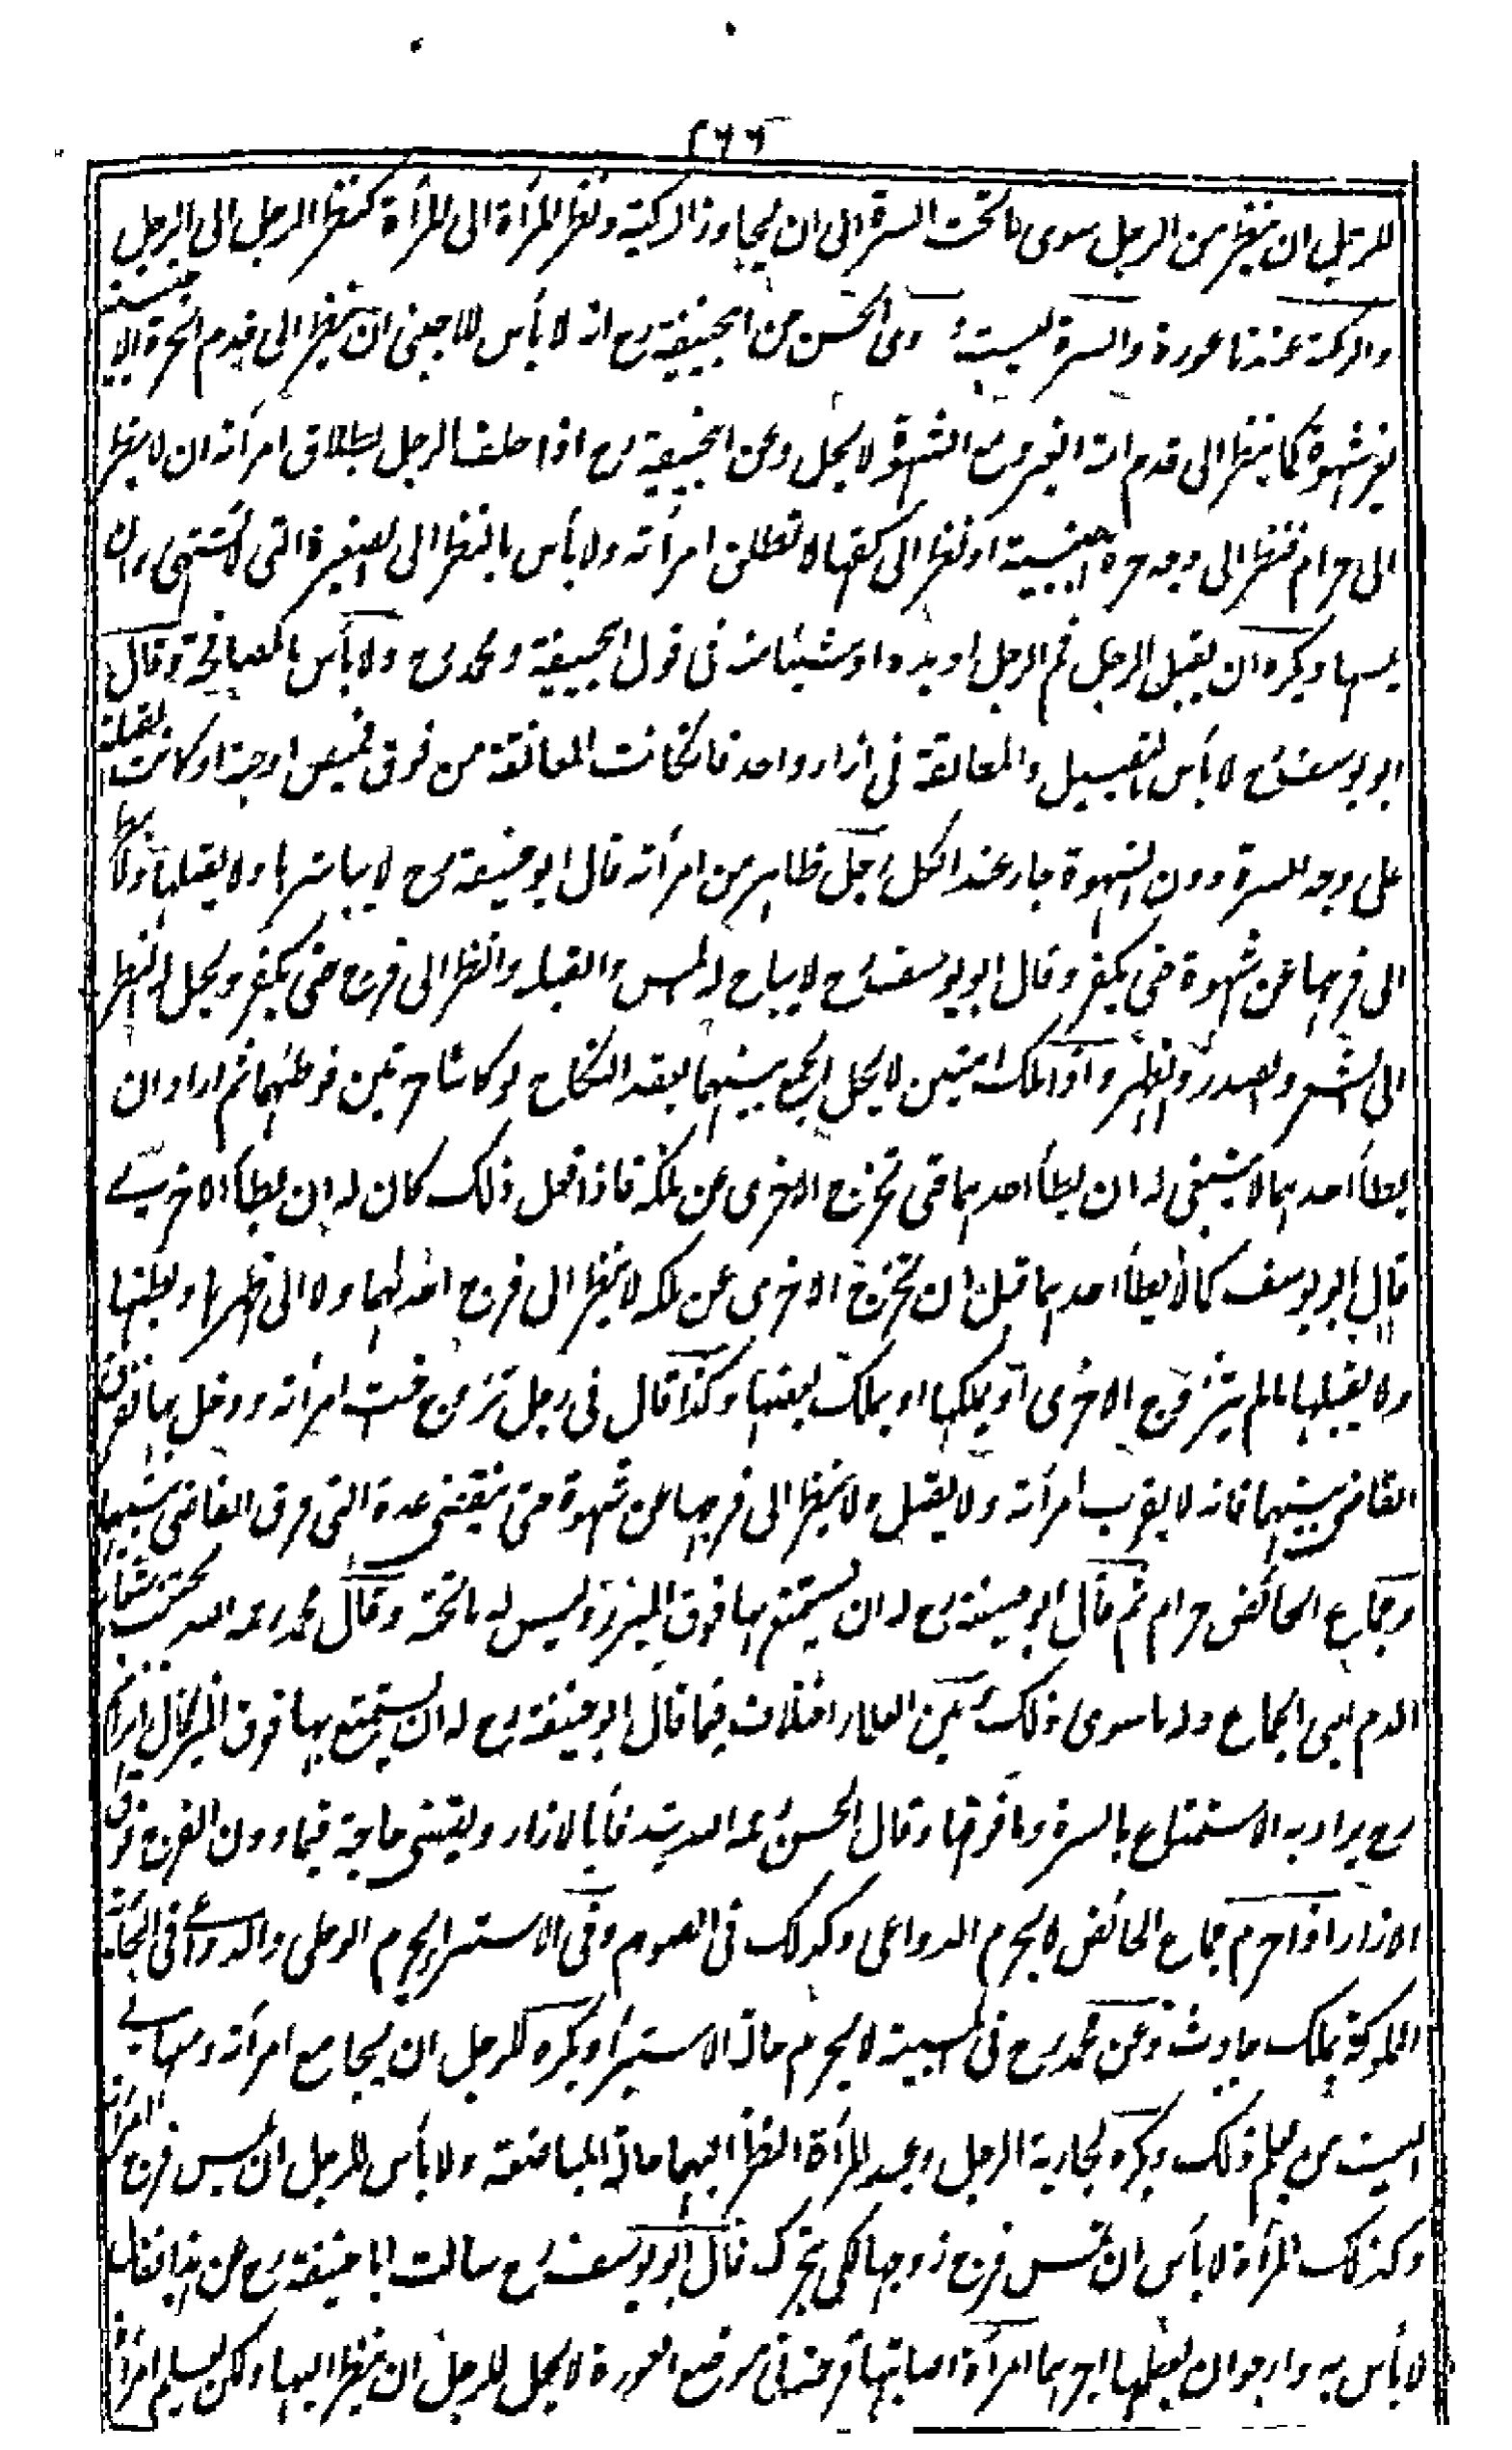 ٢٦٦
للرجل ان ينظر من الرجل سوى ما تحت السرة الى ان يجاوز الركبة ونظر المرأة الى المرأة كنظر الرجل الى الرجل
والركبة عندنا عورة والسرة ليست روى الحسن عن ابيحنيفة رح انه لا بأس للاجنبى ان ينظر الى قدم الحرة الاجنبية
بغير شهوة كما ينظر الى قدم امة الغير ومع الشهوة لا يحل وعن ابيحنيفة رح اذا حلف الرجل بطلاق امرأته ان لا ينظر
الى حرام فنظر الى وجه حرة اجنبية او نظر الى كفها لا تطلق امرأته ولا بأس بالنظر الى الصغيرة التى لا تشتهى وان
يمسها ويكره ان يقبل الرجل فم الرجل او يده او شيئا منه فى قول ابيحنيفة ومحمد رح ولا بأس بالمصافحة وقال
ابو يوسف رح لا بأس بالتقبيل والمعانقة فى ازار واحد فان كانت المعانقة من فوق قميص او جبة او كانت القبلة
على وجه المسرة دون الشهوة جاز عند الكل رجل ظاهر من امرأته قال ابو حنيفة رح لا يباشرها ولا يقبلها ولا ينظر
الى فرجها عن شهوة حتى يكفر وقال ابو يوسف رح لا يباح له المس والقبلة والنظر الى فرج حتى يكفر ويحل له النظر
الى الشعر والصدر والظهر واذا ملك امتين لا يحل الجمع بينهما بعقد النكاح لو كانتا حرتين فوطئهما ثم اراد ان
يطأ احدهما لا ينبغى له ان يطأ احدهما حتى تخرج الاخرى عن ملكه فاذا فعل ذلك كان له ان يطأ الاخرى
قال ابو يوسف كما لا يطأ احدهما قبل ان تخرج الاخرى عن ملكه لا ينظر الى فرج احدهما ولا الى ظهرها وبطنها
ولا يقبلها ما لم يتزوج الاخرى او يملكها او يملك بعضها وكذا قال فى رجل تزوج اخت امرأته ودخل بها ففرق
القاضى بينهما فانه لا يقرب امرأته ولا يقبل ولا ينظر الى فرجها عن شهوة حتى تنقضى عدة التى فرق القاضى بينهما
وجماع الحائض حرام ثم قال ابو حنيفة رح له ان يستمتع بها فوق الميزر وليس له ما تحته وقال محمد رحمه الله يجتنب شعار
الدم يعنى الجماع وله ما سوى ذلك وبين العلماء اختلاف فيما قال ابو حنيفة رح له ان يستمتع بها فوق الميزر قال ابراهيم
رح يراد به الاستمتاع بالسرة وما فوقها وقال الحسن رحمه الله يتدفأ بالازار ويقضى حاجة فيما دون الفرج فوق
الازار اذا حرم جماع الحائض لا يحرم الدواعى وكذلك فى الصوم وفى الاستبراء يحرم الوطى والدواعى فى الحادثة
المملوكة بملك حادث وعن محمد رح فى المسبية لا يحرم حالة الاستبراء ويكره للرجل ان يجامع امرأته ومعها فى
البيت من يعلم ذلك ويكره لجارية الرجل وعبد المرأة النظر اليهما حالة المباضعة ولا بأس للرجل ان يمس فرج المرأة
وكذلك المرأة لا بأس ان تمس فرج زوجها لكى يتحرك قال ابو يوسف رح سالت ابا حنيفة رح عن هذا فقال
لا بأس به وارجو ان يعظم اجرهما امرأة اصابتها قرحة فى موضع العورة لا يحل للرجل ان ينظر اليها ولكن يعلم امرأة